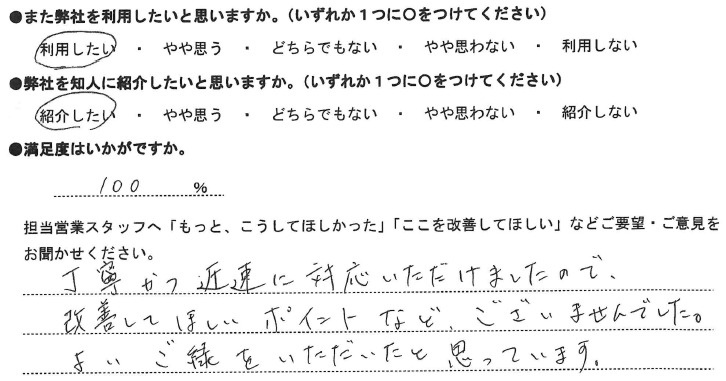 ●また弊社を利用したいと思いますか。（いずれか１つに〇をつけてください）
利用したい ・ やや思う ・ どちらでもない ・ やや思わない ・ 利用しない
●弊社を知人に紹介したいと思いますか。（いずれか１つに〇をつけてください）
紹介したい ・ やや思う ・ どちらでもない ・ やや思わない ・ 紹介しない
●満足度はいかがですか。
100 %
担当営業スタッフへ「もっと、こうしてほしかった」「ここを改善してほしい」などご要望・ご意見を
お聞かせください。
丁寧かつ近速に対応いただけましたので、
改善してほしいポイントなど、ございませんでした。
よいご縁をいただいたと思っています。